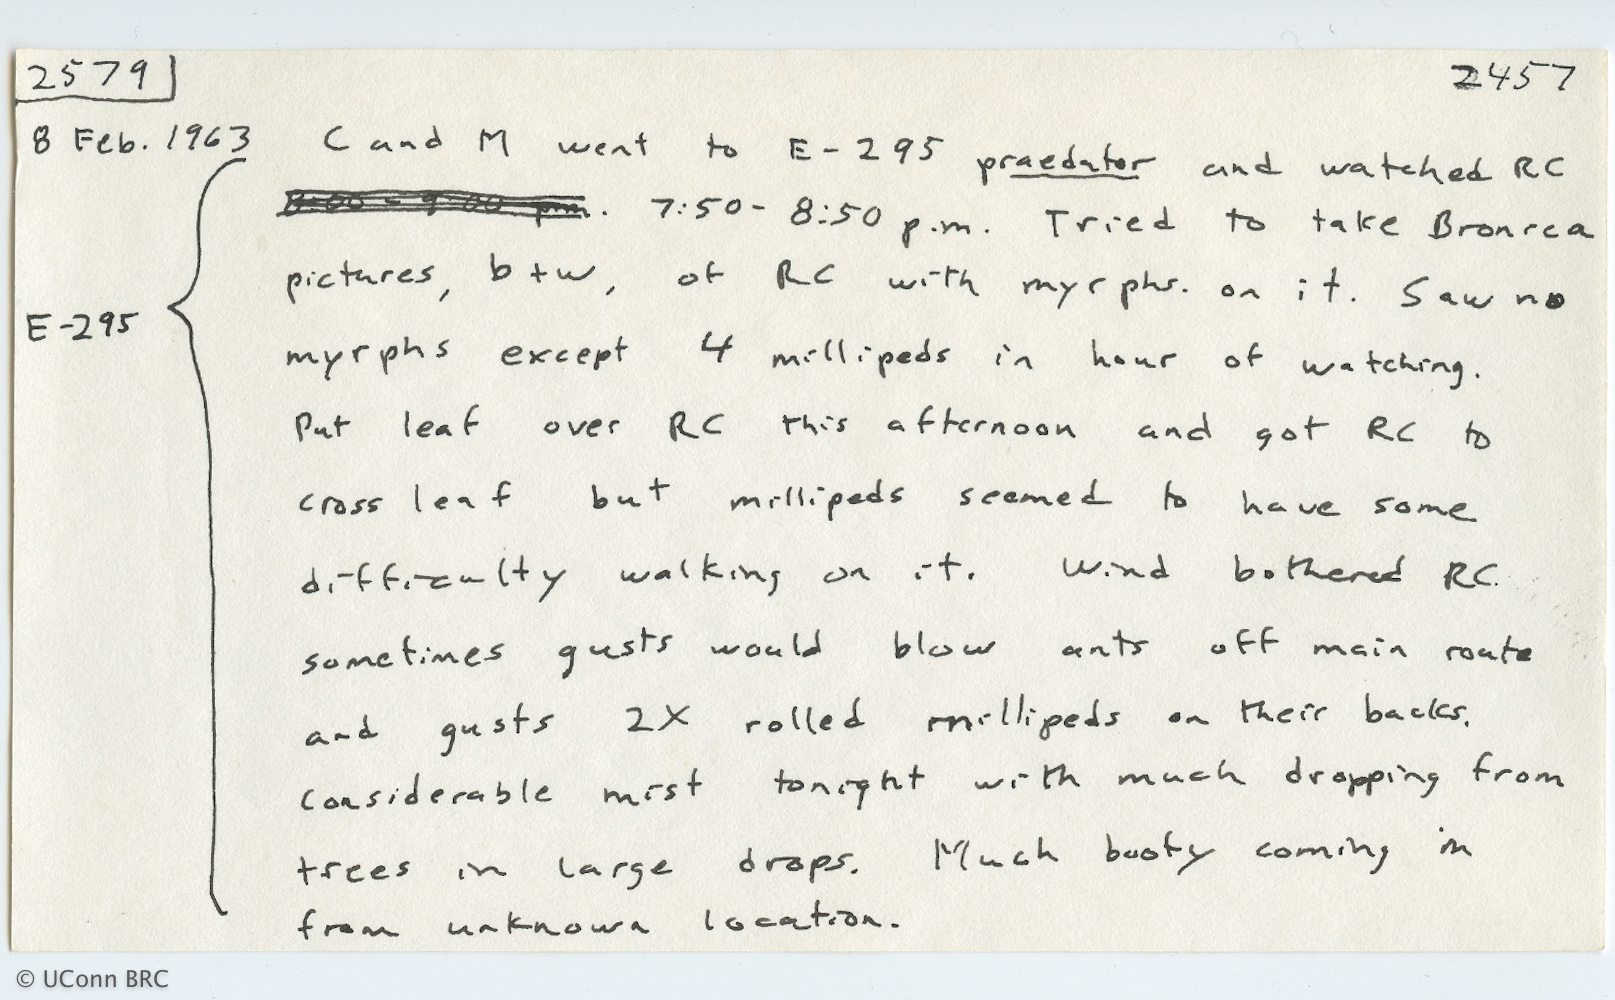 2579
2457
8 Feb. 1963 C and M went to E-295 praedator and watched RC
8:00 - 9:00 pm. 7:50 - 8:50 p.m. Tried to take Bronica
pictures, b+w, of RC with myrphs. on it. Saw no
E-295
myrphs except 4 millipeds in hour of watching.
Put leaf over RC this afternoon and got RC to
cross leaf but millipeds seemed to have some
difficulty walking on it. Wind bothered RC
sometimes gusts would blow ants off main route
and gusts 2X rolled millipeds on their backs.
Considerable mist tonight with much dropping from
trees in large drops. Much booty coming in
from unknown location.
© UConn BRC